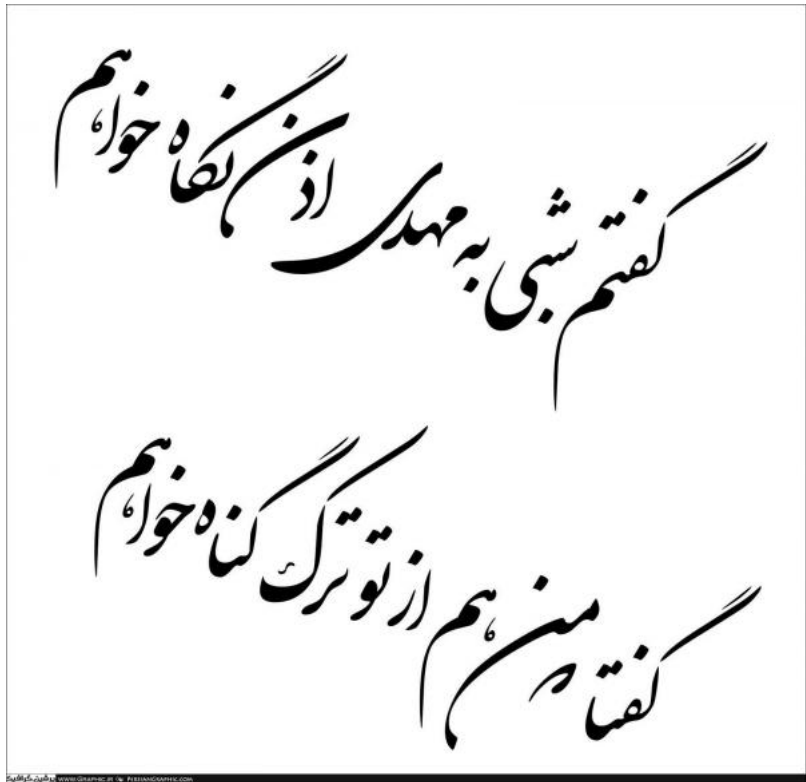 گفتم شبی به مهدی اذن نگاه خواهم
گفتا که من هم از تو ترک گناه خواهم
WWW.GRAPHIC.IR PERSIANGRAPHIC.COM